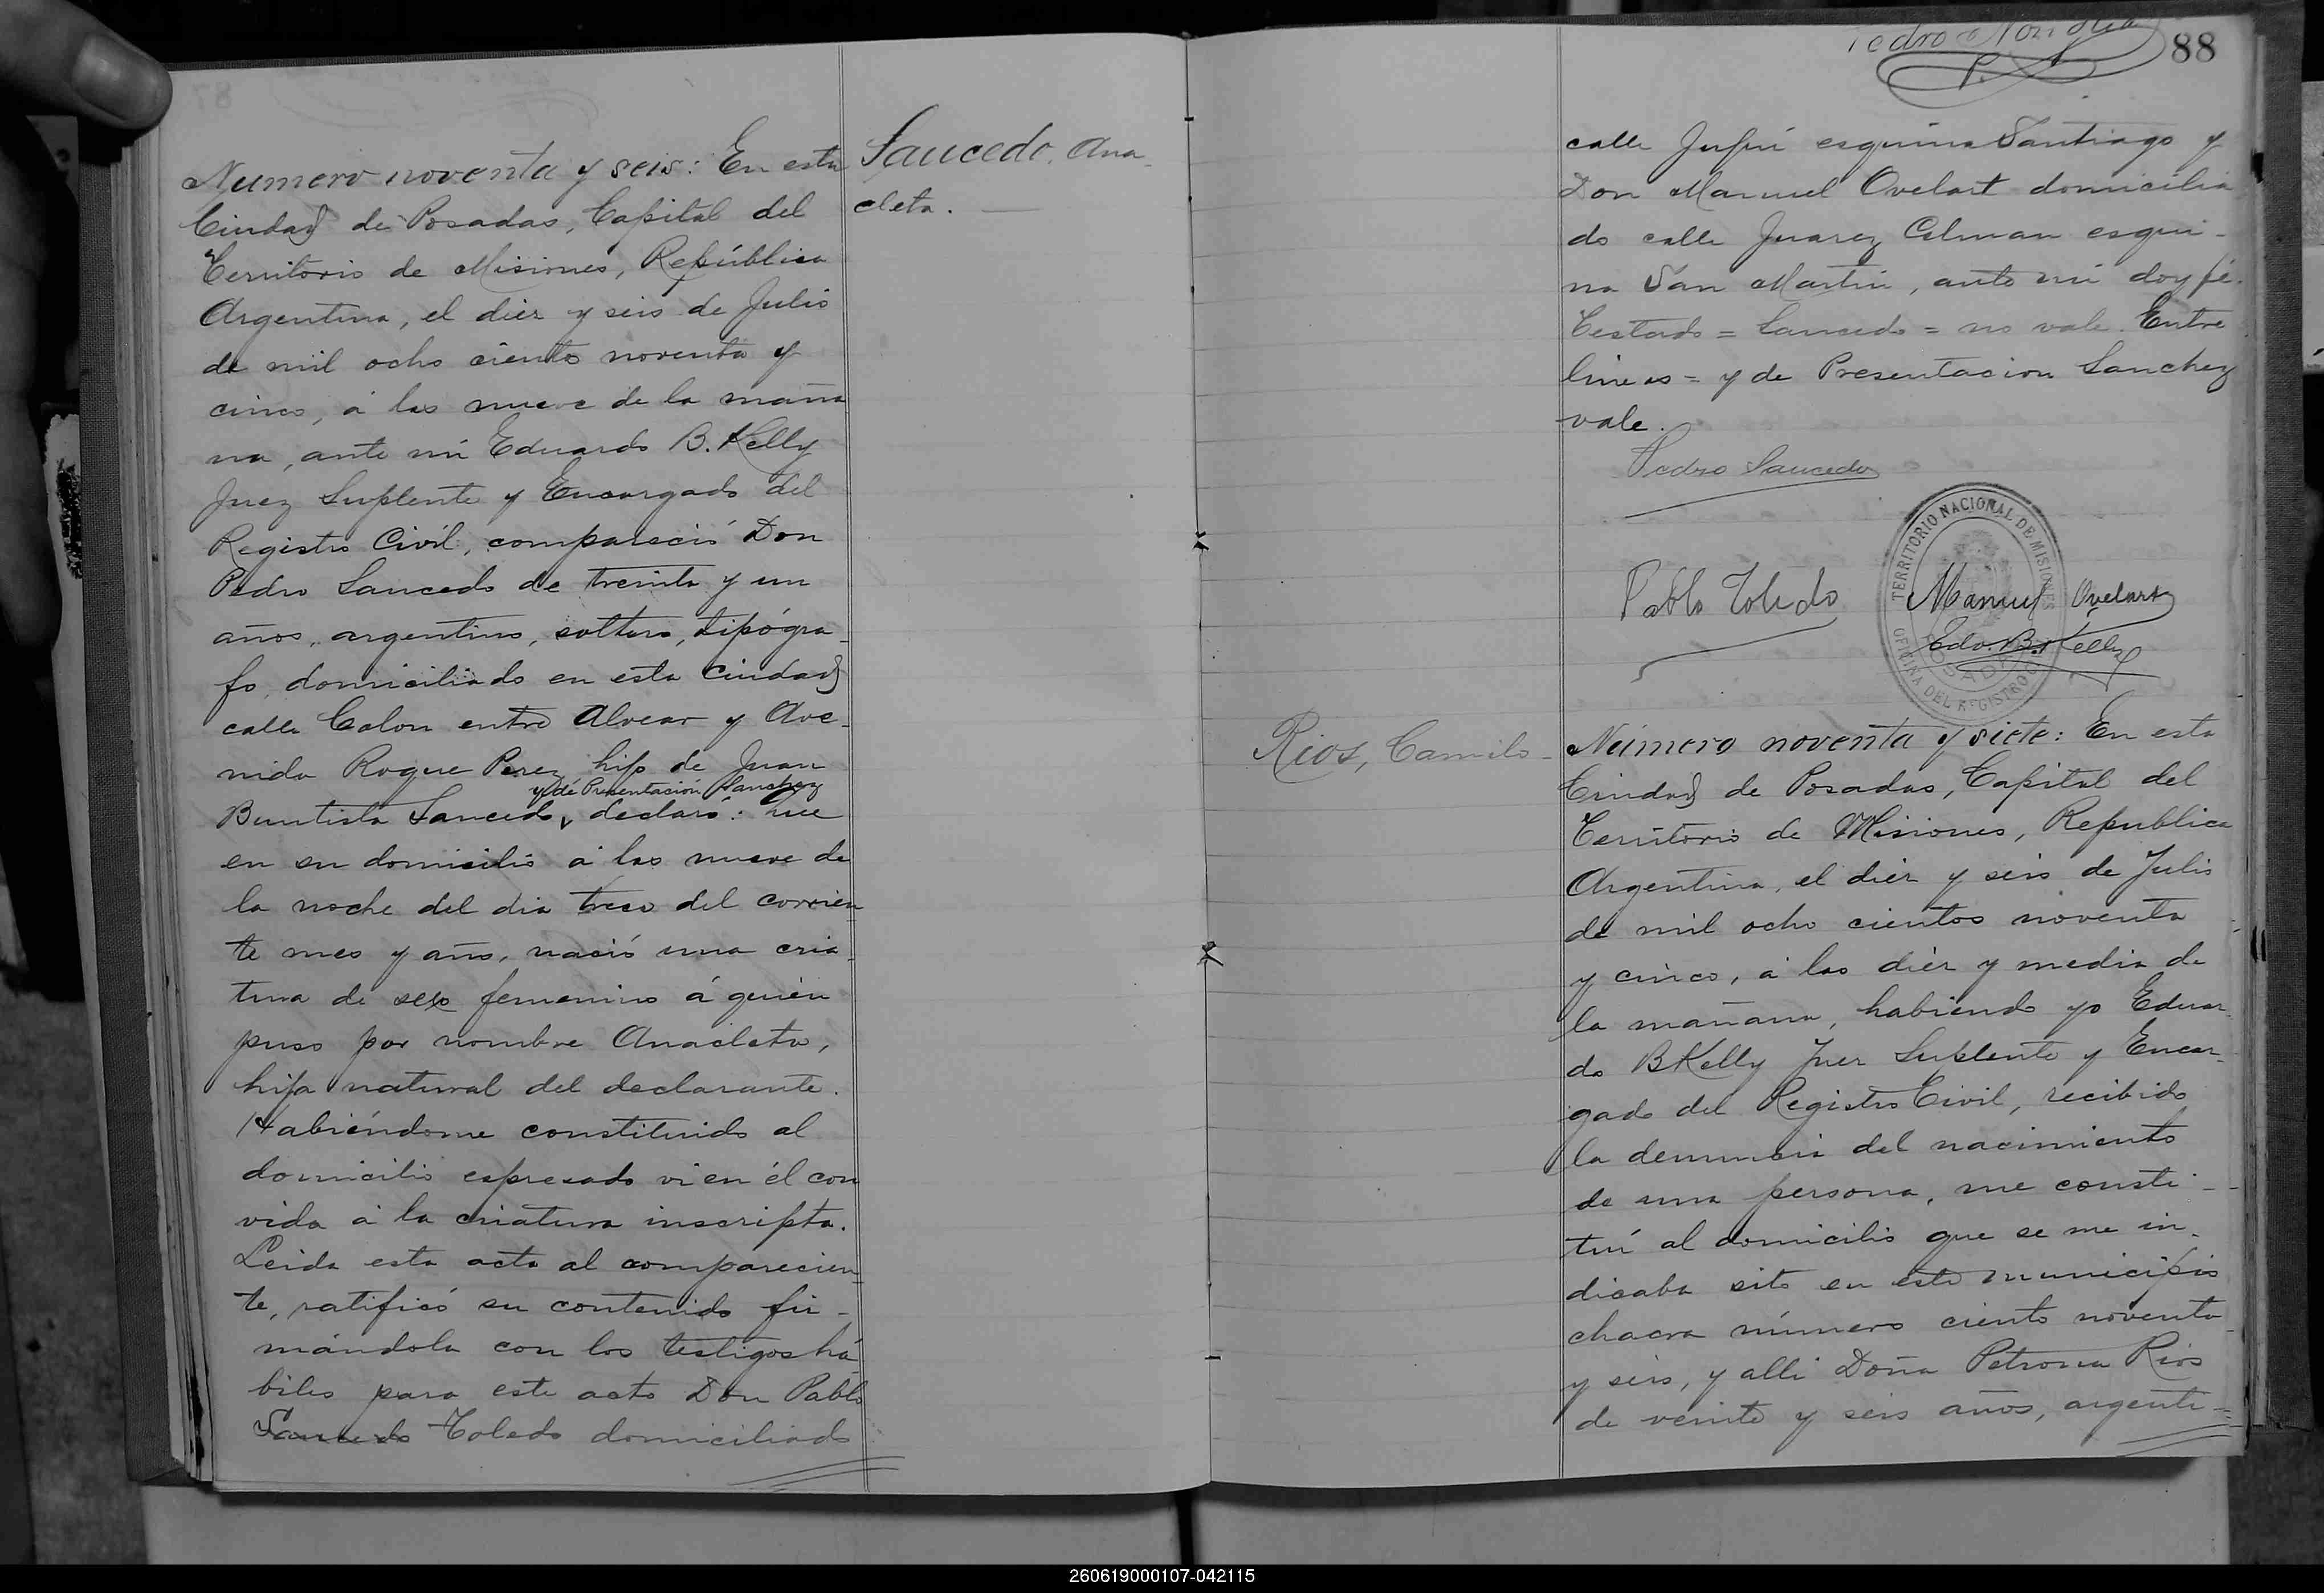 Saucedo, Ana-
cleta.
Numero noventa y seis: En esta
Ciudad de Posadas, Capital del
Territorio de Misiones, República
Argentina, el diez y seis de Julio
de mil ocho ciento noventa y
cinco, á las nueve de la maña
na, ante mí Eduardo B. Kelly
Juez Suplente y Encargado del
Registro Civil, compareció Don
Pedro Saucedo de treinta y un
años, argentino, soltero, tipógra-
fo, domiciliado en esta Ciudad
calle Colon entre Alvear y Ave-
nida Roque Perez, hijo de Juan
y de Presentación Sanchez
Bautista Saucedo, declaró: Que
en su domicilio á las nueve de
la noche del dia trece del corrien
te mes y año, nació una cria-
tura de sexo femenino á quien
puso por nombre Anacleta,
hija natural del declarante.
Habiéndome constituido al
domicilio espresado vi en él con
vida á la criatura inscripta.
Leida esta acta al comparecien-
te, ratificó su contenido fir-
mándola con los testigos há
biles para este acto Don Pablo
Saucedo Toledo domiciliado
88
calle Jujuí esquina Santiago y
Don Manuel Ovelart domicilia
do calle Juarez Celman esqui-
na San Martin, ante mí doy fé.
Testado = Saucedo = no vale. Entre
lineas = y de Presentacion Sanchez
vale.
Pedro Saucedo
TERRITORIO NACIONAL DE MISIONES
OFICINA DEL REGISTRO C
POSADAS
Pablo Toledo
Manuel Ovelart
Edo. B. Kelly
Rios, Camilo-
Número noventa y siete: En esta
Ciudad de Posadas, Capital del
Territorio de Misiones, Republica
Argentina, el diez y seis de Julio
de mil ocho cientos noventa
y cinco, á las diez y media de
la mañana, habiendo yo Eduar-
do B Kelly Juez Suplente y Encar-
gado del Registro Civil, recibido
la denuncia del nacimiento
de una persona, me consti-
tuí al domicilio que se me in-
dicaba sito en este municipio
chacra número ciento noventa
y seis, y alli Doña Petrona Rios
de veinte y seis años, argenti=
260619000107-042115